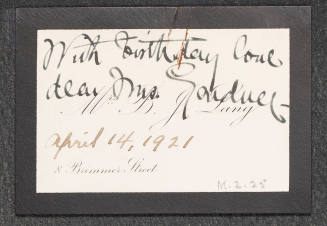 With Birthday love
dear Mrs. Gardner
Mrs. B. J. Lang
April 14, 1921
8 Brimmer Street
M.2.25